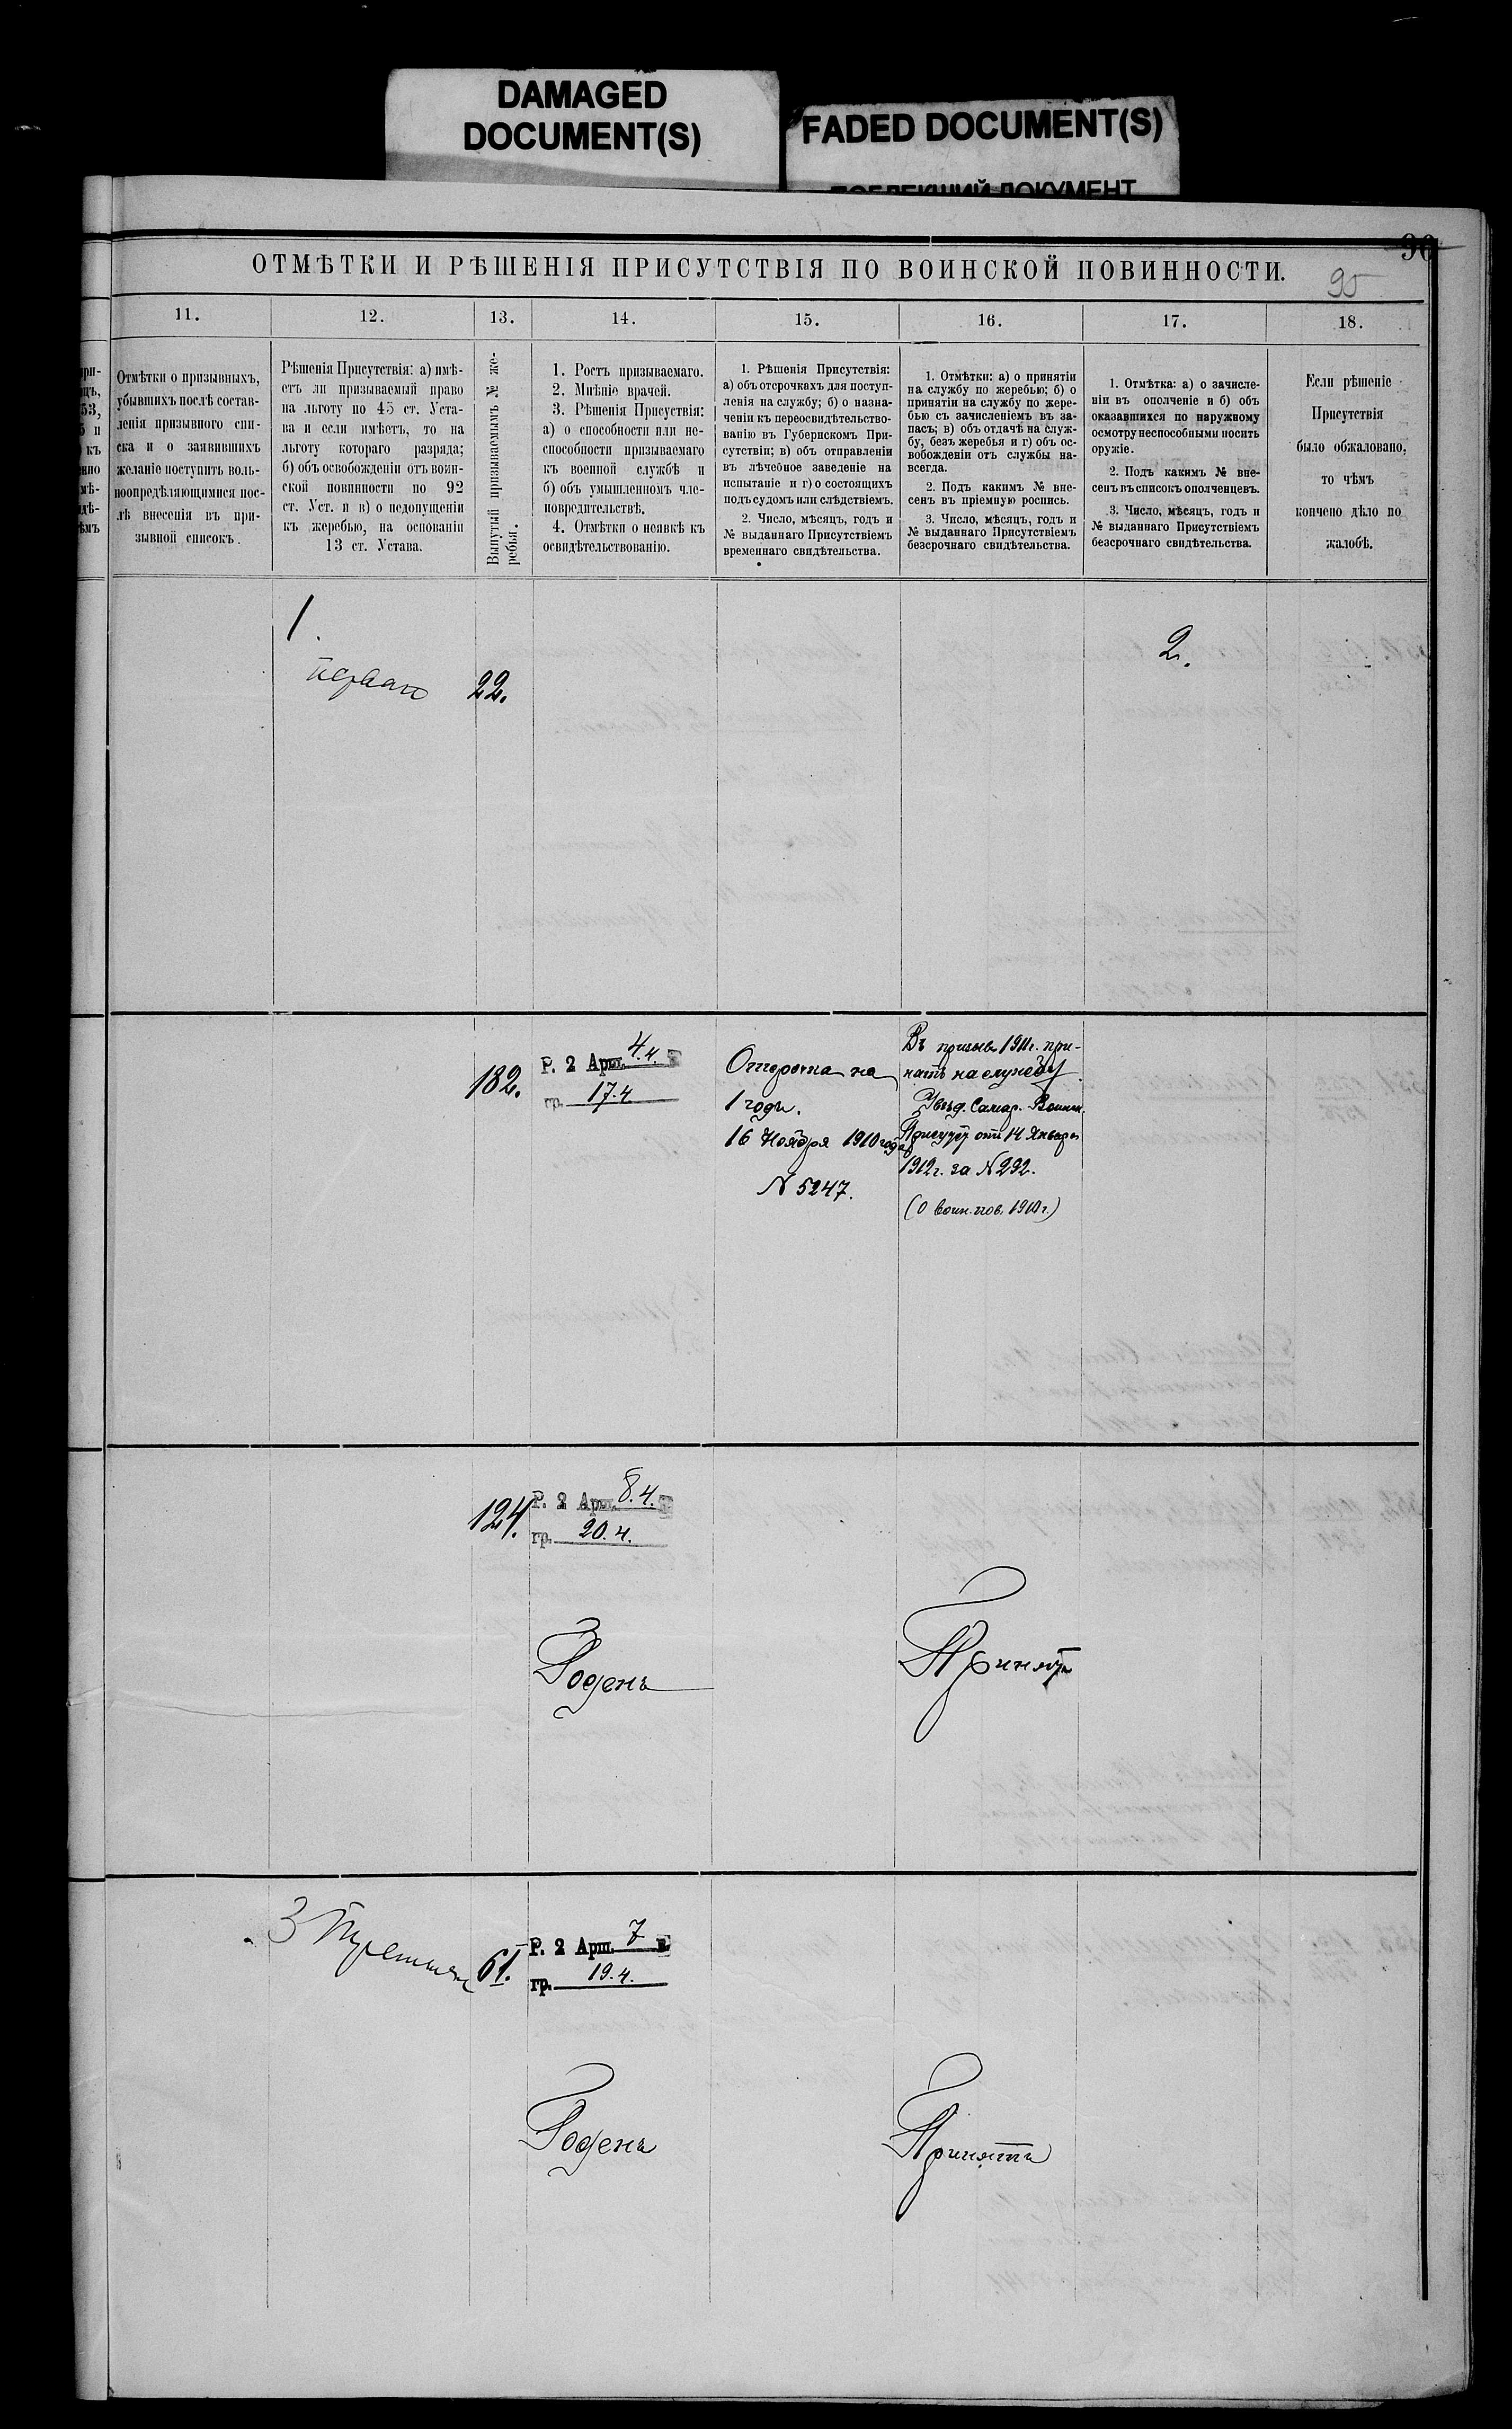 DAMAGED
DOCUMENT(S)
FADED DOCUMENT(S)
ПОБЛЕКШИЙ ДОКУМЕНТ
96
ОТМѢТКИ И РѢШЕНІЯ ПРИСУТСТВІЯ ПО ВОИНСКОЙ ПОВИННОСТИ.
95
11.
12.
13.
14.
15.
16.
17.
18.
Отмѣтки о призывныхъ,
убывшихъ послѣ состав-
ленія призывного спи-
ска и о заявившихъ
желаніе поступить воль-
ноопредѣляющимися пос-
лѣ внесенія въ при-
зывной списокъ.
Рѣшенія Присутствія: а) имѣ-
етъ ли призываемый право
на льготу по 45 ст. Уста-
ва и если имѣетъ, то на
льготу котораго разряда;
б) объ освобожденіи отъ воин-
ской повинности по 92
ст. Уст. и в) о недопущеніи
къ жеребью, на основаніи
13 ст. Устава.
Вынутый призываемымъ № же-
ребья.
1. Ростъ призываемаго.
2. Мнѣніе врачей.
3. Рѣшенія Присутствія:
а) о способности или не-
способности призываемаго
къ военной службѣ и
б) объ умышленномъ чле-
новредительствѣ.
4. Отмѣтки о неявкѣ къ
освидѣтельствованію.
1. Рѣшенія Присутствія:
а) объ отсрочкахъ для поступ-
ленія на службу; б) о назна-
ченіи къ переосвидѣтельство-
ванію въ Губернскомъ При-
сутствіи; в) объ отправленіи
въ лѣчебное заведеніе на
испытаніе и г) о состоящихъ
подъ судомъ или слѣдствіемъ.
2. Число, мѣсяцъ, годъ и
№ выданнаго Присутствіемъ
временнаго свидѣтельства.
1. Отмѣтки: а) о принятіи
на службу по жеребью; б) о
принятіи на службу по жере-
бью съ зачисленіемъ въ за-
пасъ; в) объ отдачѣ на служ-
бу, безъ жеребья и г) объ ос-
вобожденіи отъ службы на-
всегда.
2. Подъ какимъ № вне-
сенъ въ пріемную роспись.
3. Число, мѣсяцъ, годъ и
№ выданнаго Присутствіемъ
безсрочнаго свидѣтельства.
1. Отмѣтка: а) о зачисле-
ніи въ ополченіе и б) объ
оказавшихся по наружному
осмотру неспособными носить
оружіе.
2. Подъ какимъ № вне-
сенъ въ списокъ ополченцевъ.
3. Число, мѣсяцъ, годъ и
№ выданнаго Присутствіемъ
безсрочнаго свидѣтельства.
Если рѣшеніе
Присутствія
было обжаловано,
то чѣмъ
кончено дѣло по
жалобѣ.
1.
первая
22.
2.
182.
Р. 2 Арш. 4.4. в
гр. 17.4
Отсрочка на
1 годъ.
16 Ноября 1910 года
N 5247.
Въ призывъ 1911г. при-
нятъ на службу
Увѣд. Самар. Воинск.
Присутст отъ 14 Января
1912г. за N 292.
(О воин. пов. 1911г.)
124.
Р. 2 Арш. 8.4. в
гр. 20.4.
Годенъ
Принятъ
3 Третья
61.
Р. 2 Арш. 7 в
гр. 19.4.
Годенъ
Принятъ